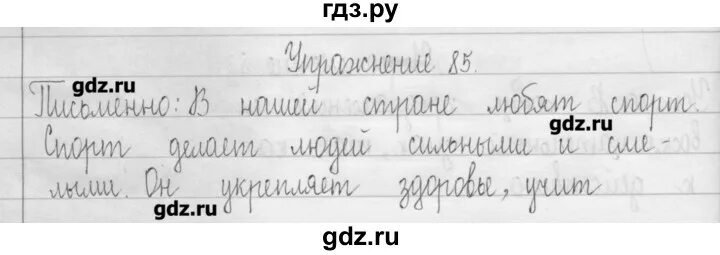 гдз.ру
Упражнение 85.
gdz.ru
Письменно: В нашей стране любят спорт.
gdz.ru
Спорт делает людей сильными и сме-
лыми. Он укрепляет здоровье, учит
gdz.ru
gdz.ru